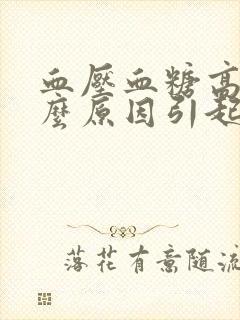 血壓血糖高
麼原因引起
落花有意随流